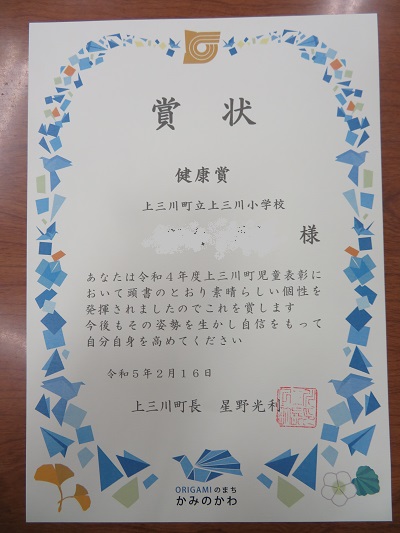 賞状
健康賞
上三川町立上三川小学校
様
あなたは令和4年度上三川町児童表彰に
おいて頭書のとおり素晴らしい個性を
発揮されましたのでこれを賞します
今後もその姿勢を生かし自信をもって
自分自身を高めてください
令和5年2月16日
上三川町長 星野光利
ORIGAMIのまち
かみのかわ